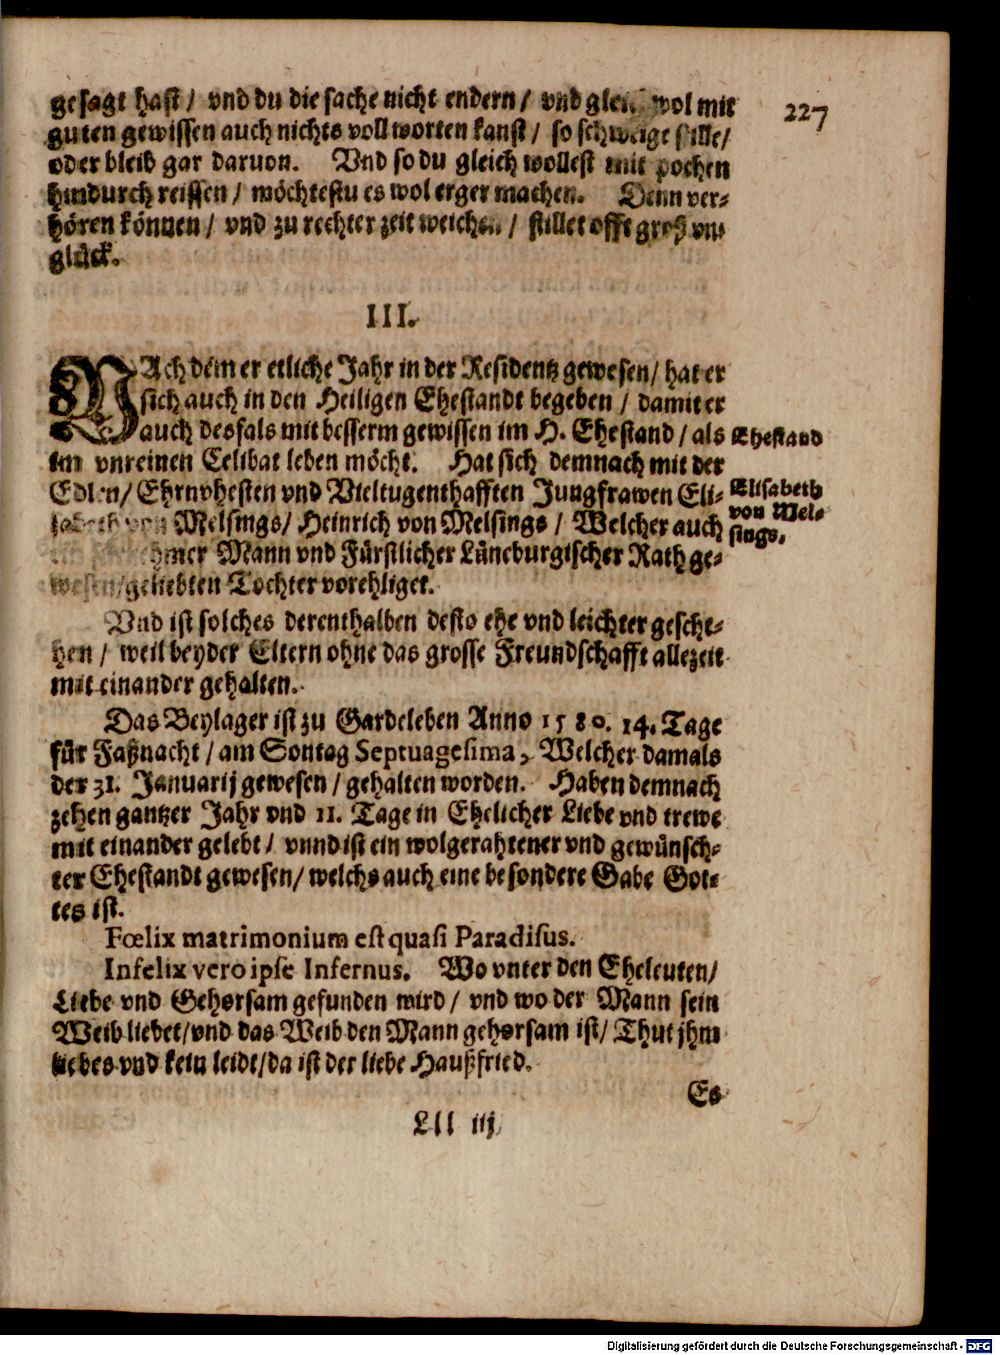 227
gesagt hast / vnd du die sache nicht endern / vnd wol mit
guten gewissen auch nichts vollworten kanst / so schweige stille /
oder bleib gar daruon. Vnd so du gleich wollest mit pochen
hindurch reissen / möchtestu es wol erger machen. Denn ver-
hören können / vnd zu rechter zeit weichen / stillet offt groß vn-
glück.
III.
NAch dem er etliche Jahr in der Residentz gewesen / hat er
sich auch in den Heiligen Ehestandt begeben / damit er
auch desfals mit besserm gewissen im H. Ehestand / als
im vnreinen Celibat leben möcht. Hat sich demnach mit der
Edlen / Ehrnvhesten vnd Vieltugenthafften Jungfrawen Eli-
sabeth von Melsings / Heinrich von Melsings / Welcher auch
Mann vnd Fürstlicher Lüneburgischer Rath ge-
wesen / geliebten Tochter vorehliget.
Ehestand
Elisabeth
von Mel-
sings.
Vnd ist solches derenthalben desto ehe vnd leichter gesche-
hen / weil beyder Eltern ohne das grosse Freundschafft allezeit
mit einander gehalten.
Das Beylager ist zu Gardeleben Anno 1580. 14. Tage
für Faßnacht / am Sontag Septuagesima, Welcher damals
der 31. Januarij gewesen / gehalten worden. Haben demnach
zehen gantzer Jahr vnd 11. Tage in Ehelicher Liebe vnd trewe
mit einander gelebt / vnnd ist ein wolgerahtener vnd gewünsch-
ter Ehestandt gewesen / welchs auch eine besondere Gabe Got-
tes ist.
Fœlix matrimonium est quasi Paradisus.
Infelix vero ipse Infernus. Wo vnter den Eheleuten /
Liebe vnd Gehorsam gefunden wird / vnd wo der Mann sein
Weib liebet / vnd das Weib den Mann gehorsam ist / Thut jhm
liebes vnd kein leidt / da ist der liebe Haußfried.
Es
Lll iij
Digitalisierung gefördert durch die Deutsche Forschungsgemeinschaft - DFG